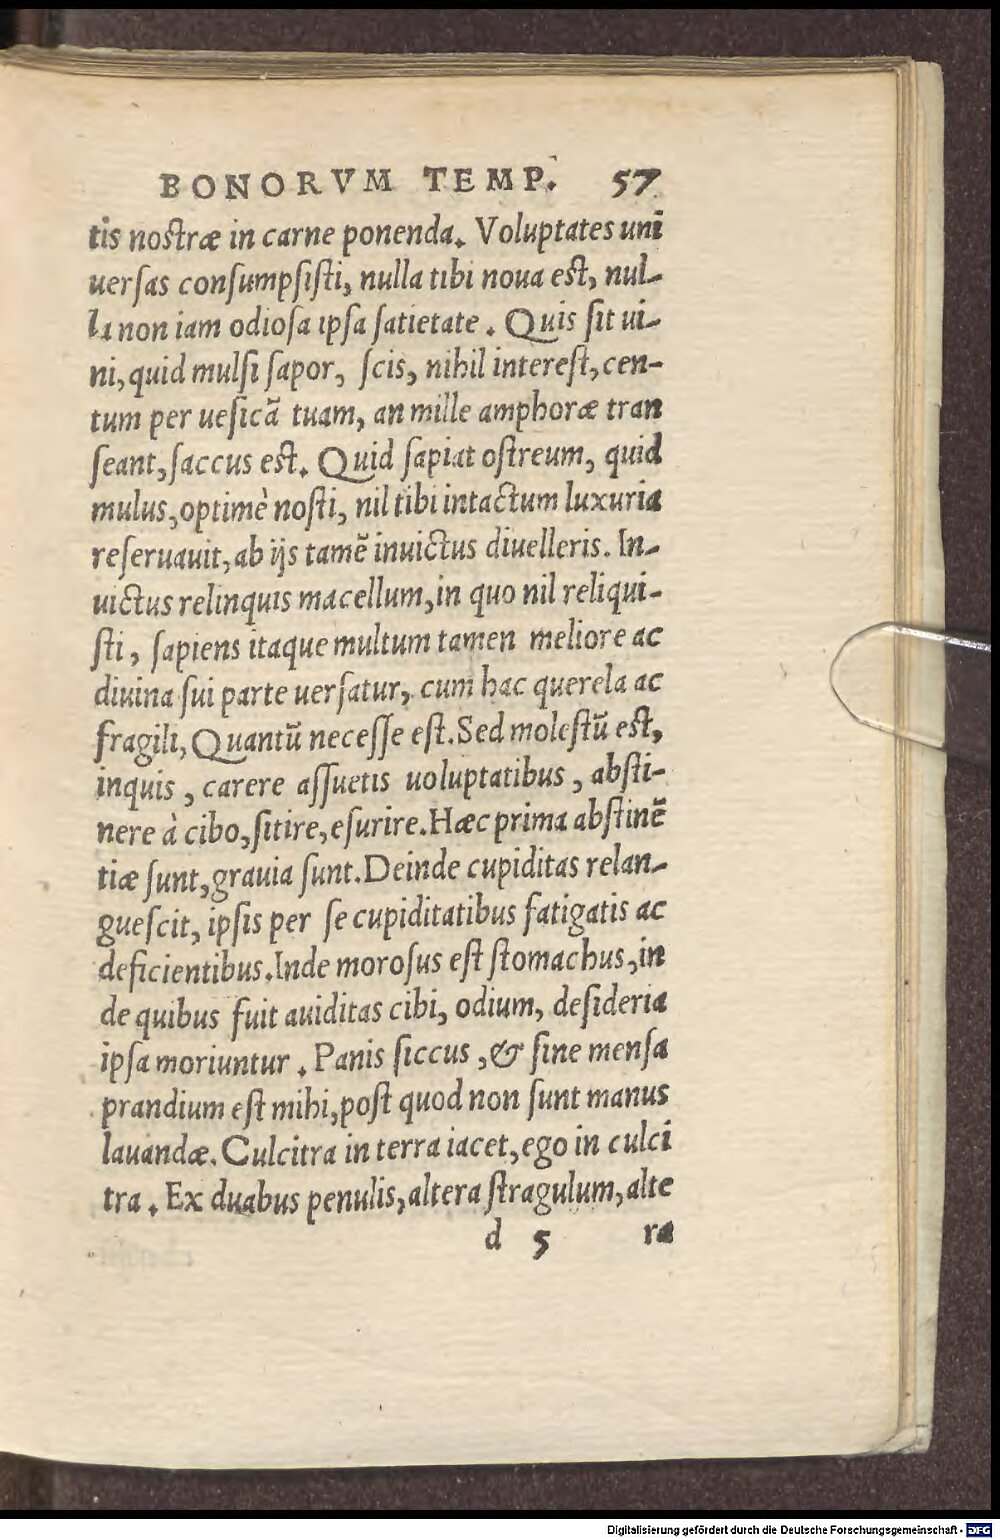 BONORVM TEMP. 57
tis nostræ in carne ponenda. Voluptates uni
uersas consumpsisti, nulla tibi noua est, nul-
la non iam odiosa ipsa satietate. Quis sit ui-
ni, quid mulsi sapor, scis, nihil interest, cen-
tum per uesicã tuam, an mille amphoræ tran
seant, saccus est. Quid sapiat ostreum, quid
mulus, optimè nosti, nil tibi intactum luxuria
reseruauit, ab ijs tamẽ inuictus diuelleris. In-
uictus relinquis macellum, in quo nil reliqui-
sti, sapiens itaque multum tamen meliore ac
diuina sui parte uersatur, cum hac querela ac
fragili, Quantũ necesse est. Sed molestũ est,
inquis, carere assuetis uoluptatibus, absti-
nere à cibo, sitire, esurire. Hæc prima abstinẽ
tiæ sunt, grauia sunt. Deinde cupiditas relan-
guescit, ipsis per se cupiditatibus fatigatis ac
deficientibus. Inde morosus est stomachus, in
de quibus fuit auiditas cibi, odium, desideria
ipsa moriuntur. Panis siccus, & sine mensa
prandium est mihi, post quod non sunt manus
lauandæ. Culcitra in terra iacet, ego in culci
tra. Ex duabus penulis, altera stragulum, alte
d 5 ra
Digitalisierung gefördert durch die Deutsche Forschungsgemeinschaft - DFG